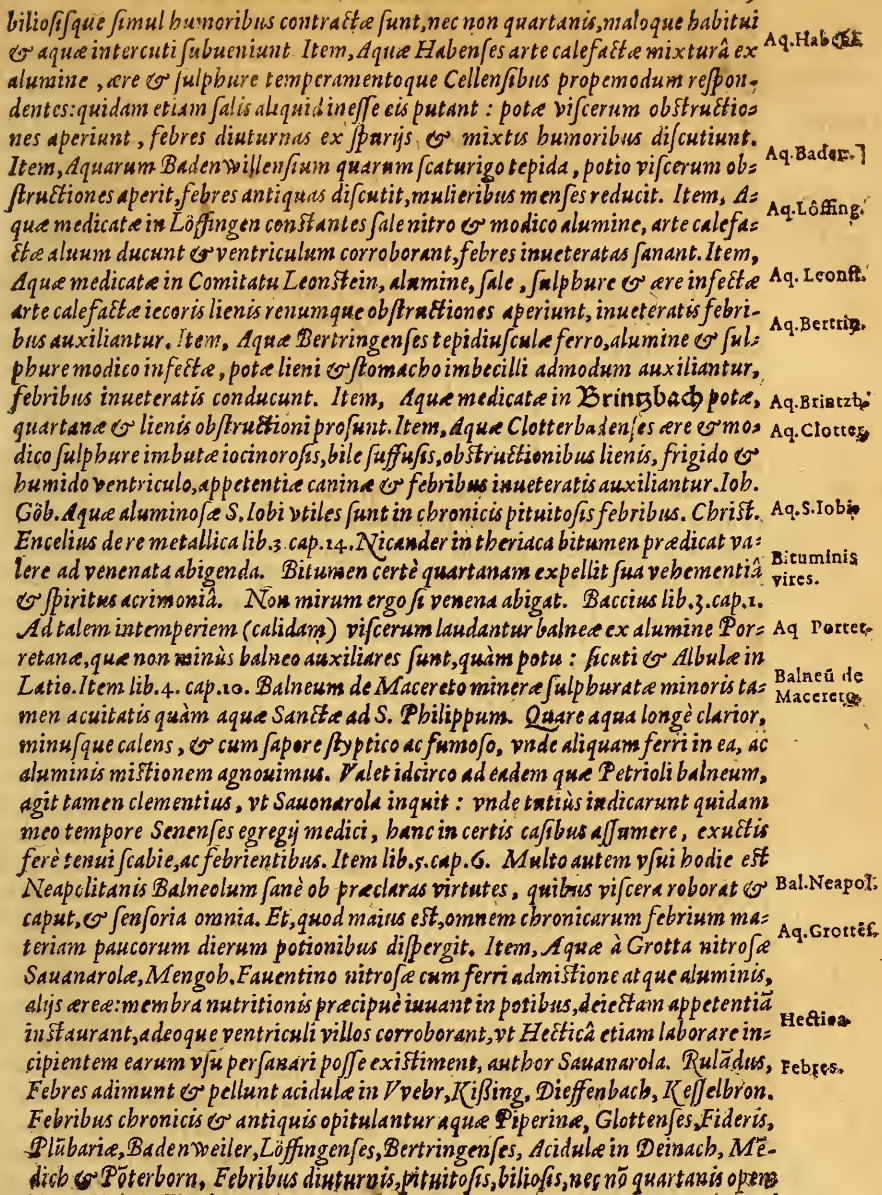 bilioſiſque ſimul humoribus contractæ ſunt, nec non quartanis, maloque habitui
& aquæ intercuti ſubueniunt Item, Aquæ Habenſes arte calefactæ mixturâ ex
Aq.Habēſ.
alumine, ære & ſulphure temperamentoque Cellenſibus propemodum reſpon-
dentes: quidam etiam ſalis aliquid ineſſe eis putant : potæ viſcerum obſtructio=
nes aperiunt, febres diuturnas ex ſpurijs, & mixtis humoribus diſcutiunt.
Item, Aquarum Badenwillenſium quarum ſcaturigo tepida, potio viſcerum ob=
Aq.Baden.
ſtructiones aperit, febres antiquas diſcutit, mulieribus menſes reducit. Item, A=
quæ medicatæ in Löffingen conſtantes ſale nitro & modico alumine, arte calefa=
Aq.Löffing.
ctæ aluum ducunt & ventriculum corroborant, febres inueteratas ſanant. Item,
Aquæ medicatæ in Comitatu Leonſtein, alumine, ſale, ſulphure & ære infectæ
Aq. Leonſt.
arte calefactæ iecoris lienis renumque obſtructiones aperiunt, inueteratis febri-
bus auxiliantur. Item, Aquæ Bertringenſes tepidiuſculæ ferro, alumine & ſul=
Aq.Bertrin.
phure modico infectæ, potæ lieni & ſtomacho imbecilli admodum auxiliantur,
febribus inueteratis conducunt. Item, Aquæ medicatæ in Brintzbach potæ,
Aq.Brintzb.
quartanæ & lienis obſtructioni proſunt. Item, Aquæ Clotterbadenſes ære & mo=
Aq.Clotter.
dico ſulphure imbutæ iocinoroſis, bile ſuffuſis, obſtructionibus lienis, frigido &
humido ventriculo, appetentiæ caninæ & febribus inueteratis auxiliantur. Ioh.
Göb. Aquæ aluminoſæ S. Iobi vtiles ſunt in chronicis pituitoſis febribus. Chriſt.
Aq.S.Iobi.
Encelius de re metallica lib.3 cap.14. Nicander in theriaca bitumen prædicat va=
lere ad venenata abigenda. Bitumen certè quartanam expellit ſua vehementiâ
Bituminis
vires.
& ſpiritus acrimoniâ. Non mirum ergo ſi venena abigat. Baccius lib.3.cap.1.
Ad talem intemperiem (calidam) viſcerum laudantur balneæ ex alumine Por=
Aq Porret.
retanæ, quæ non minùs balneo auxiliares ſunt, quàm potu : ſicuti & Albulæ in
Latio. Item lib.4. cap.10. Balneum de Macereto mineræ ſulphuratæ minoris ta=
Balneū de
Macereto.
men acuitatis quàm aquæ Sanctæ ad S. Philippum. Quare aqua longè clarior,
minuſque calens, & cum ſapore ſtyptico ac fumoſo, vnde aliquam ferri in ea, ac
aluminis miſtionem agnouimus. Valet idcirco ad eadem quæ Petrioli balneum,
agit tamen clementius, vt Sauonarola inquit : vnde tutiùs indicarunt quidam
meo tempore Senenſes egregij medici, hanc in certis caſibus aſſumere, exuctis
ferè tenui ſcabie, ac febrientibus. Item lib.5.cap.6. Multo autem vſui hodie eſt
Neapolitanis Balneolum ſanè ob præclaras virtutes, quibus viſcera roborat &
Bal.Neapol.
caput, & ſenſoria omnia. Et, quod maius eſt, omnem chronicarum febrium ma=
teriam paucorum dierum potionibus diſpergit. Item, Aquæ à Grotta nitroſæ
Aq.Grotteſ.
Sauanarolæ, Mengoh. Fauentino nitroſæ cum ferri admiſtione atque aluminis,
alijs æreæ: membra nutritionis præcipuè iuuant in potibus, deiectam appetentiā
inſtaurant, adeoque ventriculi villos corroborant, vt Hecticâ etiam laborare in=
Hectica.
cipientem earum vſu perſanari poſſe exiſtiment, author Sauanarola. Rulādus,
Febres.
Febres adimunt & pellunt acidulæ in Vvebr, Kißing, Dieffenbach, Keſſelbron.
Febribus chronicis & antiquis opitulantur aquæ Piperinæ, Glottenſes, Fideris,
Plūbariæ, Badenweiler, Löffingenſes, Bertringenſes, Acidulæ in Deinach, Mē-
dich & Pōterborn, Febribus diuturnis, pituitoſis, bilioſis, nec nō quartanis opem